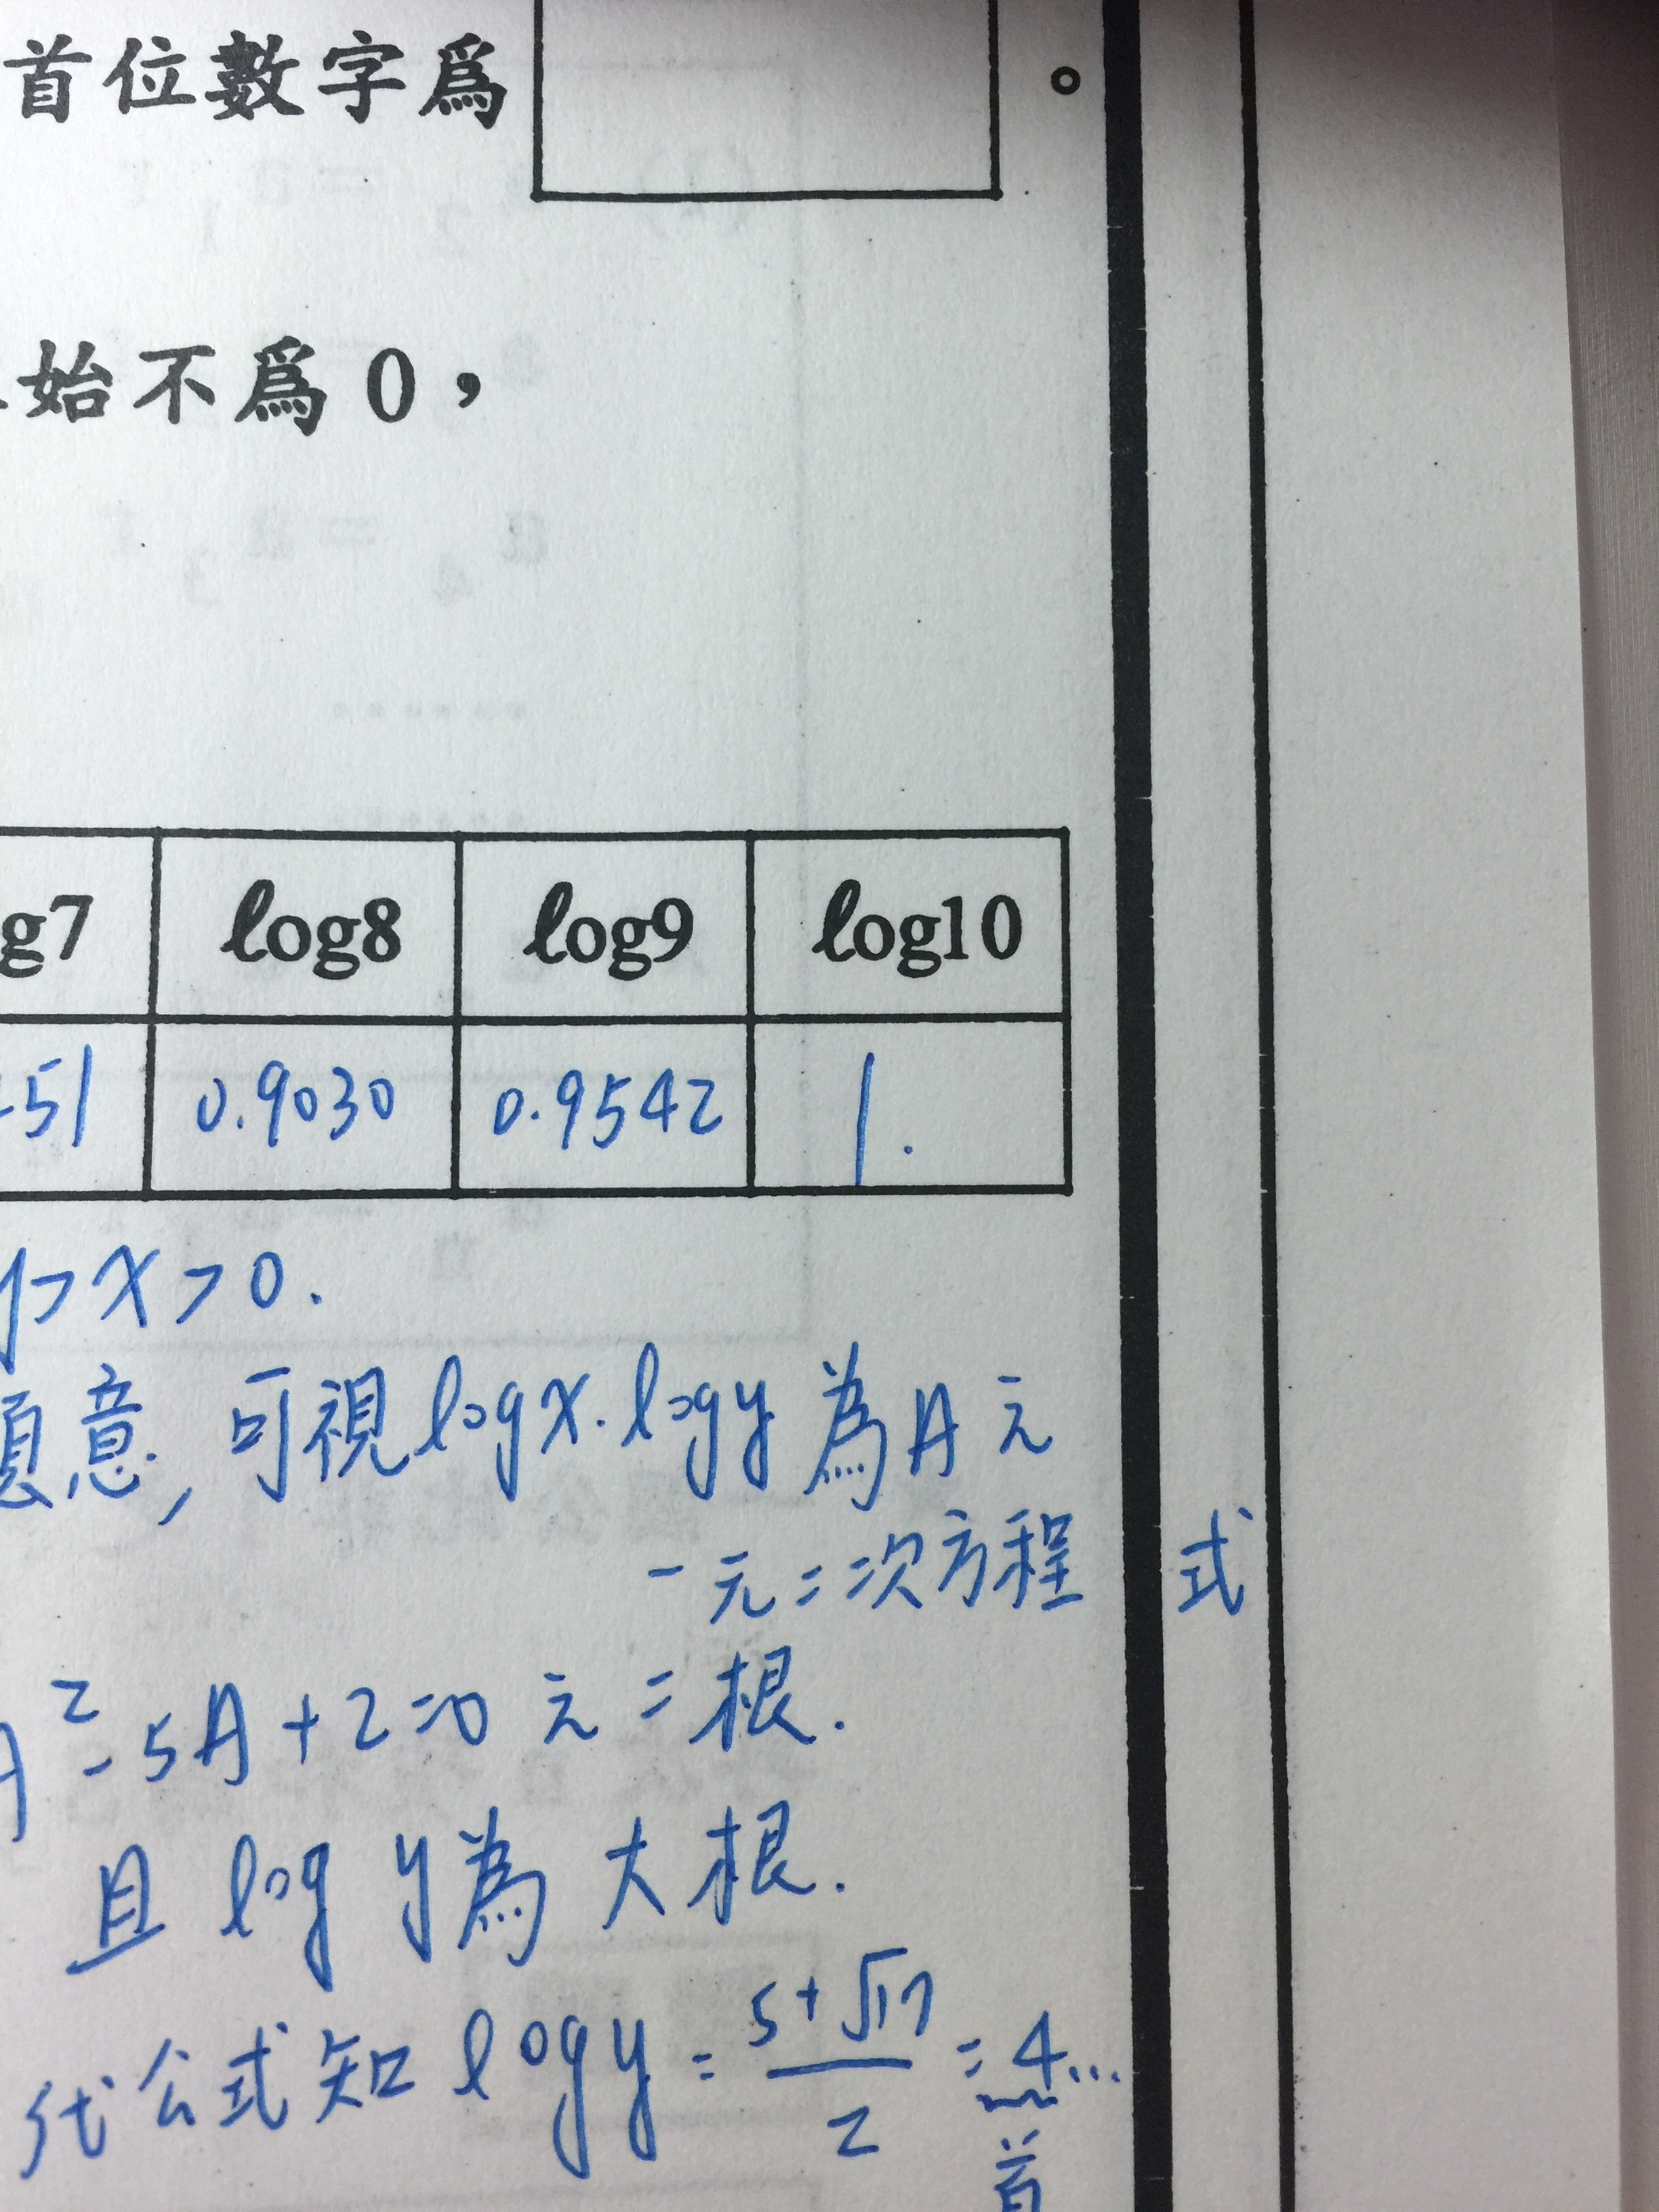 首位數字爲 。
始不爲0，
g7 log8 log9 log10
51 0.9030 0.9542 1.
y>x>0.
意, 可視logx.logy為A之
一元二次方程式
A²-5A+2=0之二根.
且logy為大根.
代公式知logy=(5+√17)/2=4...
首